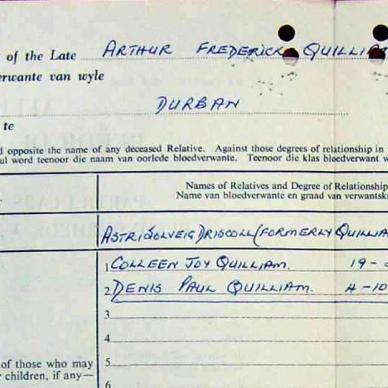 of the Late ARTHUR FREDERICK QUILLIAM
erwante van wyle
DURBAN
te
opposite the name of any deceased Relative. Against those degrees of relationship in
ul word teenoor die naam van oorlede bloedverwante. Teenoor die klas bloedverwant w
Names of Relatives and Degree of Relationship
Name van bloedverwante en graad van verwantsk
ASTRI SOLVEIG DRISCOLL (FORMERLY QUILLIA
1 COLLEEN JOY QUILLIAM. 19 -
2 DENIS PAUL QUILLIAM. 4-10
3
4
of those who may
5
children, if any—
6